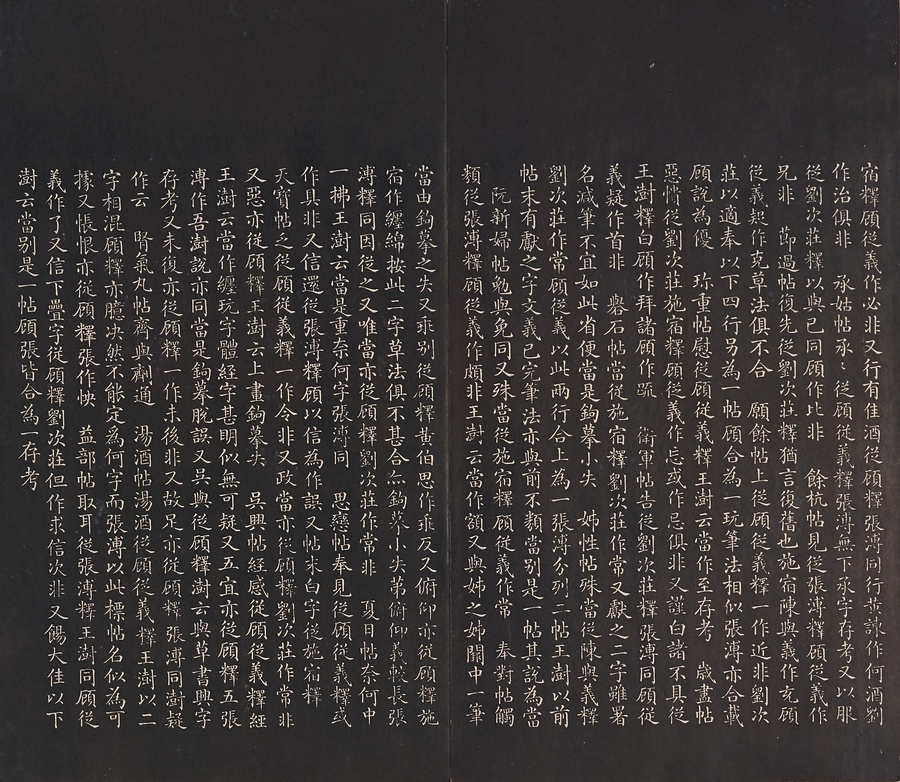 宿釋顧從義作必非又行有佳酒從顧釋張溥同行黃諫作何酒劉
作治俱非　承姑帖承〻從顧從義釋張溥無下承字存考又以服
從劉次莊釋以與已同顧作比非　餘杭帖見從張溥釋顧從義作
兄非　節過帖復先從劉次莊釋猶言復舊也施宿陳與義作玄顧
從義䂓作克草法俱不合　願餘帖上從顧從義釋一作近非劉次
莊以適奉以下四行另為一帖顧合為一玩筆法相似張溥亦合載
顧說為優　珎重帖慰從顧從義釋王澍云當作至存考　歲盡帖
惡情從劉次莊施宿釋顧從義作忘或作忌俱非又謹白諸不具從
王澍釋白顧作拜諸顧作䟽　衛軍帖告從劉次莊釋張溥同顧從
義疑作首非　礜石帖當從施宿釋劉次莊作常又獻之二字雖署
名減筆不宜如此省便當是鉤摹小失　姊性帖殊當從陳與義釋
劉次莊作常顧從義以此兩行合上為一張溥分列二帖王澍以前
帖末有獻之字文義已完筆法亦與前不類當別是一帖其說為當
阮新婦帖勉與免同又殊當從施宿釋顧從義作常　奉對帖觸
類從張溥釋顧從義作頗非王澍云當作額又與姊之姊闕中一筆
當由鉤摹之失又乖別從顧釋黃伯思作乖反又俯仰亦從顧釋施
宿作纏綿按此二字草法俱不甚合亦鉤摹小失第俯仰義較長張
溥釋同因從之又唯當亦從顧釋劉次莊作常非　夏日帖奈何中
一拂王澍云當是重奈何字張溥同　思戀帖奉見從顧從義釋或
作具非又信還從張溥釋顧以信為作誤又帖末白字從施宿釋
天寶帖之從顧從義釋一作今非又政當亦從顧釋劉次莊作常非
又惡亦從顧釋王澍云上畫鉤摹失　吳興帖經感從顧從義釋經
王澍云當作纏玩字體經字甚明似無可疑又五宜亦從顧釋五張
溥作吾澍說亦同當是鉤摹脫誤又吳與從顧釋澍云與草書興字
存考又未復亦從顧釋一作未後非又故足亦從顧釋張溥同澍疑
作云　腎氣丸帖齊與劑通　湯酒帖湯酒從顧從義釋王澍以二
字相混顧釋亦臆決然不能定為何字而張溥以此標帖名似為可
據又悵恨亦從顧釋張作怏　益部帖取耳從張溥釋王澍同顧從
義作了又信下疊字從顧釋劉次莊但作求信次非又餳大佳以下
澍云當別是一帖顧張皆合為一存考